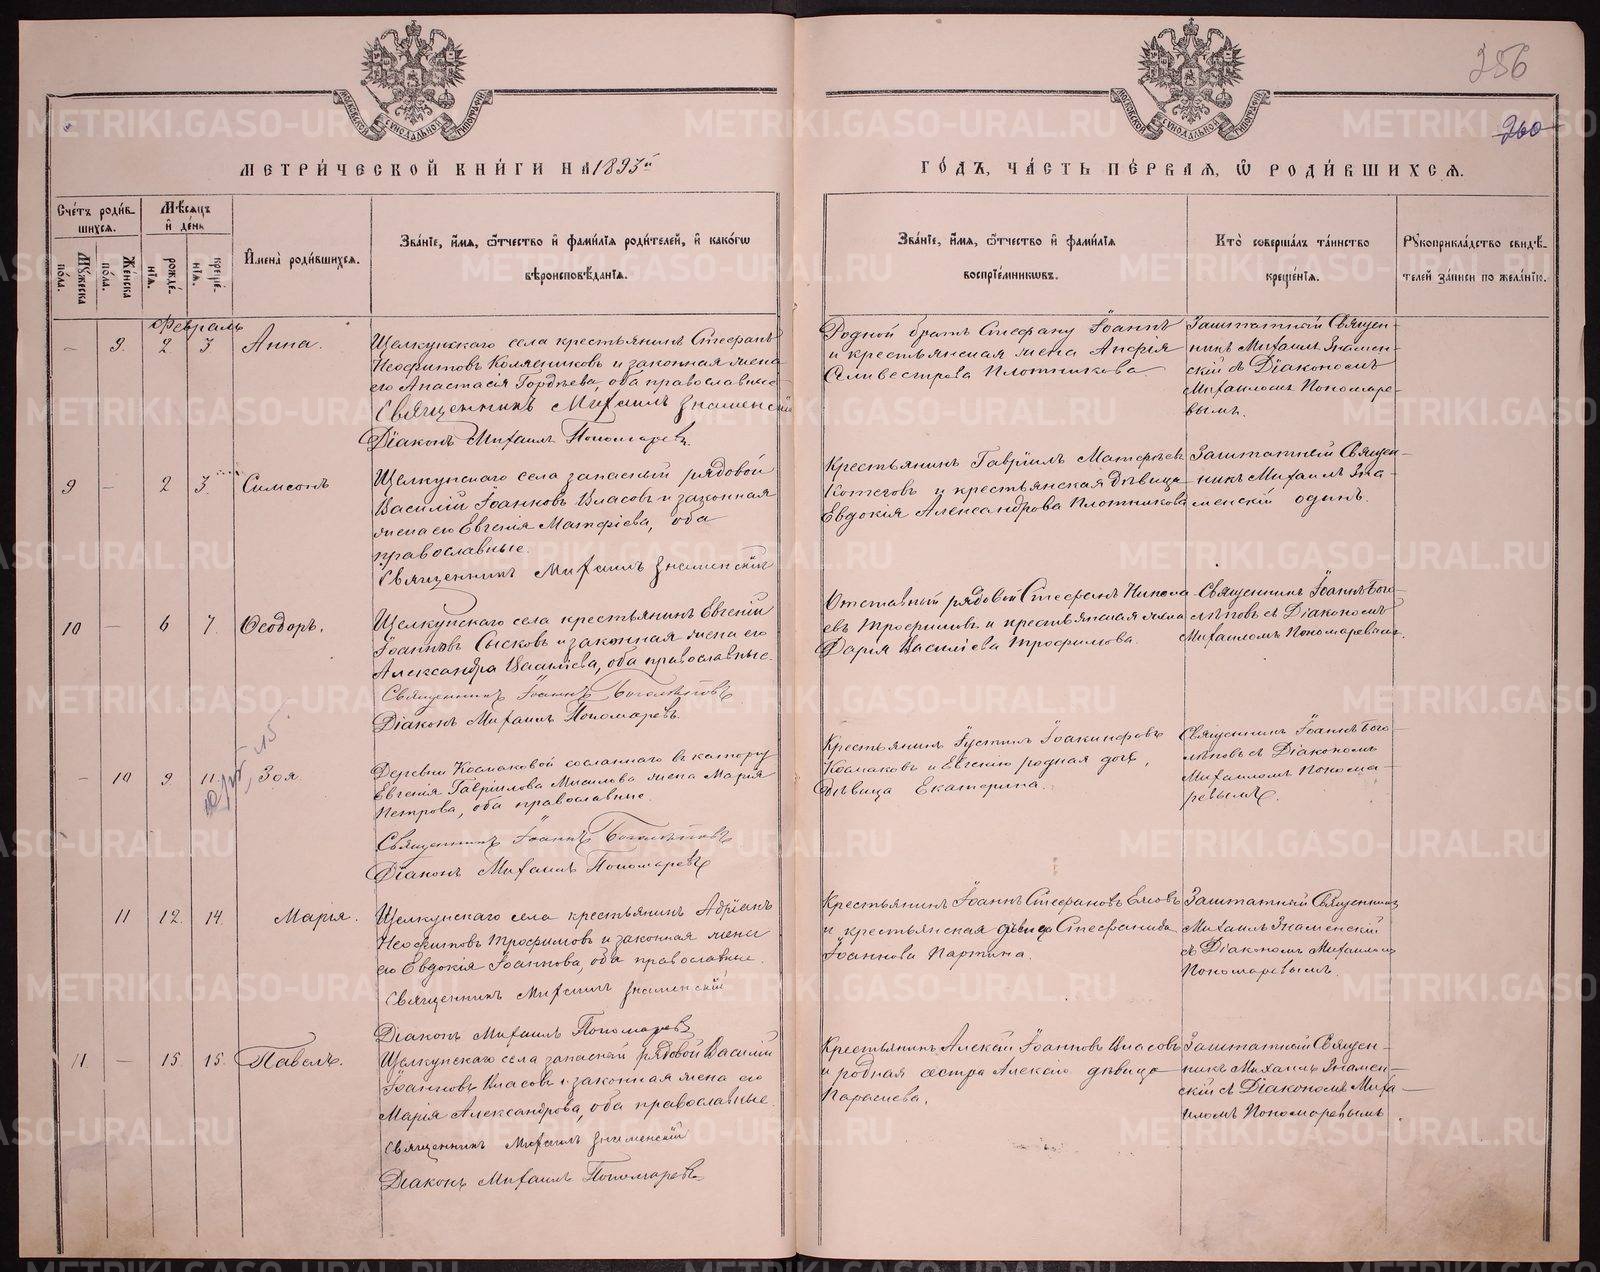 256
260
МОСКОВСКОЙ СѴНОДАЛЬНОЙ ТИПОГРАФІИ
МОСКОВСКОЙ СѴНОДАЛЬНОЙ ТИПОГРАФІИ
МЕТРИ́ЧЕСКОЙ КНИ́ГИ НА 1893й
ГО́ДЪ, ЧА́СТЬ ПЕ́РВАЯ, Ѡ РОДИ́ВШИХСЯ.
Сче́тъ роди́в-
шихся.
Мѣ́сяцъ
и҆ де́нь
Му́жеска по́ла.
Же́нска по́ла.
рожде́-
нія.
креще́-
нія.
И҆мена̀ роди́вшихся.
Зва́нїе, и҆́мя, ѻ҆́тчество и҆ фами́лїя роди́телей, и҆ како́гѡ
вѣроисповѣ́данїя.
Зва́нїе, и҆́мя, ѻ҆́тчество и҆ фами́лїя
воспрїе́мниковъ.
Кто̀ соверша́лъ та́инство
креще́нїя.
Рꙋкоприкла́дство свидѣ́-
телей за́писи по жела́нїю.
Февраль
— 9. 2 3 Анна.
Щелкунскаго села крестьянинъ Стефанъ
Неофитовъ Колясниковъ и законная жена
его Анастасія Гордѣева, оба православные
Священникъ Михаилъ Знаменскій
Діаконъ Михаилъ Пономаревъ.
Родной братъ Стефану Іоаннъ
и крестьянская жена Анфія
Селивестрова Плотникова
Заштатный Священ-
никъ Михаилъ Знамен-
скій съ Діакономъ
Михаиломъ Пономаре-
вымъ.
9 — 2 3. Симеонъ
Щелкунскаго села запасный рядовой
Василій Іоанновъ Власовъ и законная
жена его Евгенія Матфіева, оба
православные.
Священникъ Михаилъ Знаменскій
Крестьянинъ Гавріилъ Матфіевъ
Котеговъ и крестьянская дѣвица
Евдокія Александрова Плотникова
Заштатный Священ-
никъ Михаилъ Зна-
менскій одинъ.
10 — 6 7. Ѳеодоръ.
Щелкунскаго села крестьянинъ Евгеній
Іоанновъ Сысковъ и законная жена его
Александра Василіева, оба православные.
Священникъ Іоаннъ Боголѣповъ
Діаконъ Михаилъ Пономаревъ.
Отставный рядовой Стефанъ Никола-
евъ Трофимовъ и крестьянская жена
Дарія Василіева Трофимова.
Священникъ Іоаннъ Бого-
лѣповъ съ Діакономъ
Михаиломъ Пономаревымъ.
— 10 9. 11. Зоя.
Деревни Космаковой сосланнаго въ каторгу
Евгенія Гавріилова Мисилова жена Марія
Петрова, оба православные.
Священникъ Іоаннъ Боголѣповъ
Діаконъ Михаилъ Пономаревъ
Крестьянинъ Іустинъ Іоакинфовъ
Космаковъ и Евгенію родная дочь,
дѣвица Екатерина.
Священникъ Іоаннъ Бого-
лѣповъ съ Діакономъ
Михаиломъ Понома-
ревымъ.
11 12. 14. Марія.
Щелкунскаго села крестьянинъ Адріанъ
Неофитовъ Трофимовъ и законная жена
его Евдокія Іоаннова, оба православные.
Священникъ Михаилъ Знаменскій
Діаконъ Михаилъ Пономаревъ
Крестьянинъ Іоаннъ Стефановъ
и крестьянская дѣвица Стефанида
Іоаннова Партина.
Заштатный Священникъ
Михаилъ Знаменскій
съ Діакономъ Михаиломъ
Пономаревымъ.
11. — 15. 15. Павелъ.
Щелкунскаго села запасный рядовой Василій
Іоанновъ Власовъ и законная жена его
Марія Александрова, оба православные.
Священникъ Михаилъ Знаменскій
Діаконъ Михаилъ Пономаревъ
Крестьянинъ Алексій Іоанновъ Власовъ
и родная сестра Алексію дѣвица
Параскева.
Заштатный Священ-
никъ Михаилъ Знамен-
скій съ Діакономъ Миха-
иломъ Пономаревымъ
METRIKI.GASO-URAL.RU